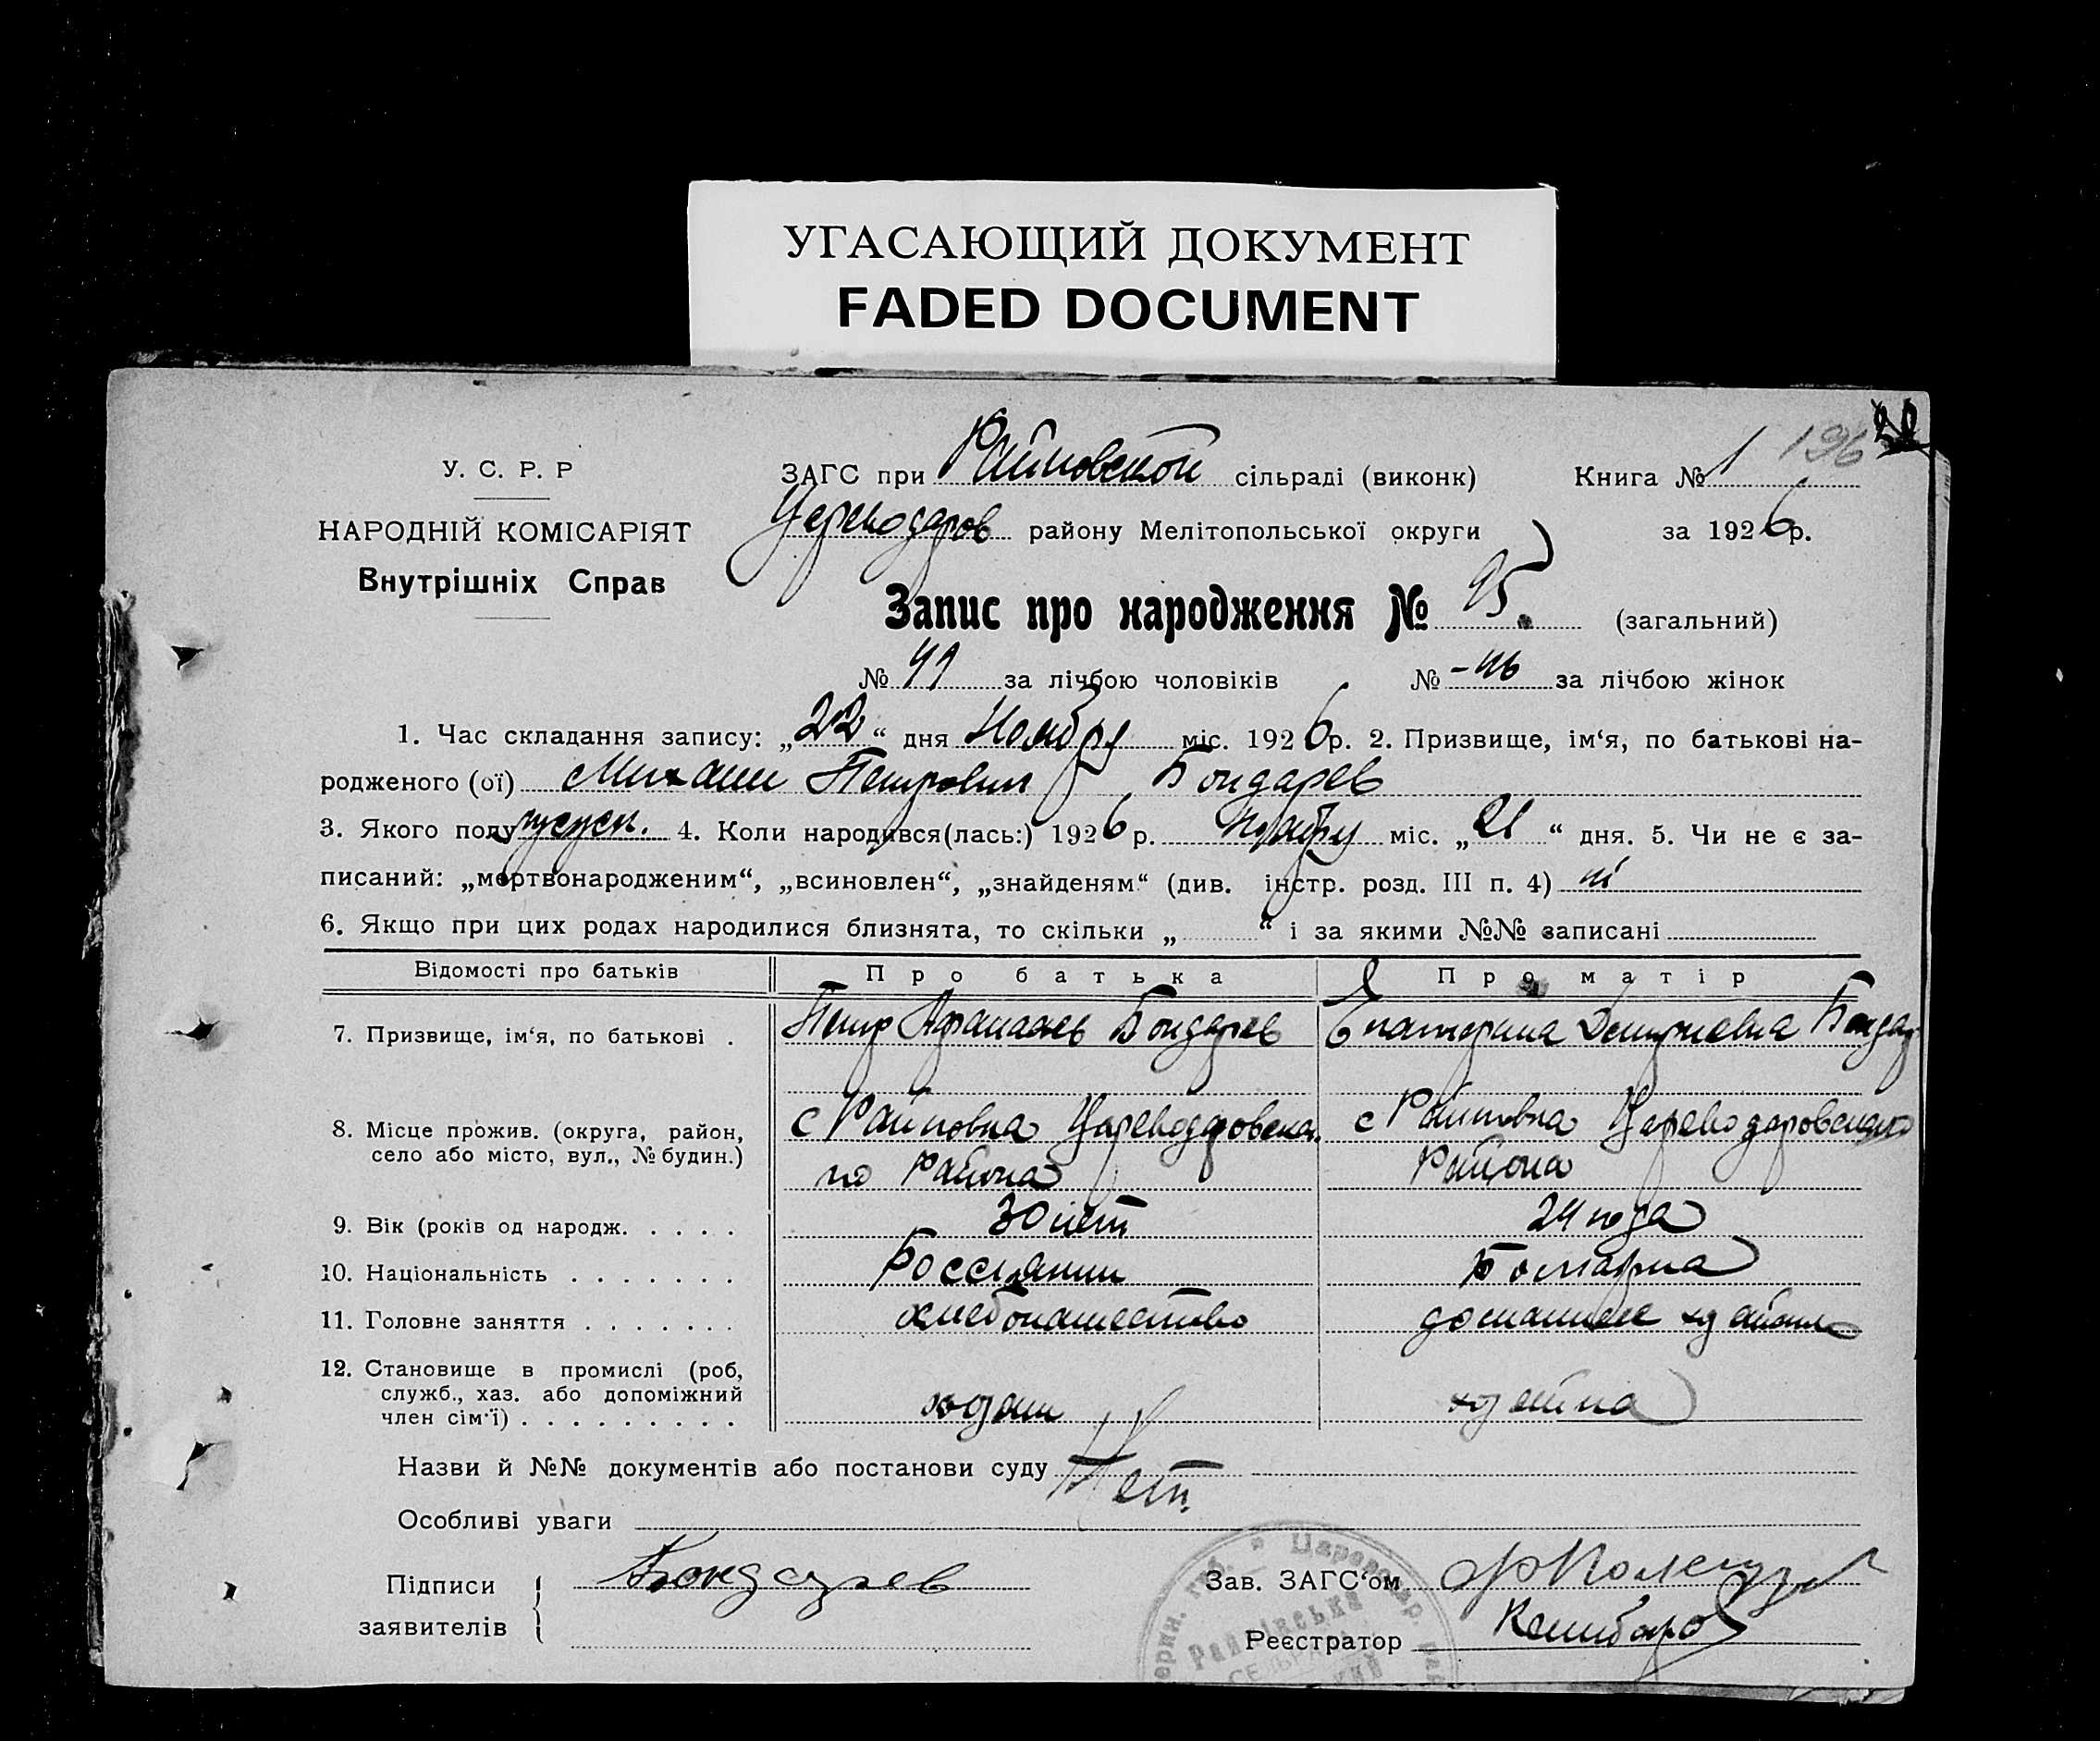 УГАСАЮЩИЙ ДОКУМЕНТ
FADED DOCUMENT
196
У. С. Р. Р
ЗАГС при Райновской сільраді (виконк) Книга № 1
НАРОДНІЙ КОМІСАРІЯТ
Внутрішніх Справ
Цареводаров району Мелітопольської округи за 1926р.
Запис про народження № 95. (загальний)
№ 49 за лічбою чоловіків № -46 за лічбою жінок
1. Час складання запису: „22“ дня Ноябру міс. 1926р. 2. Призвище, ім‘я, по батькові на-
родженого (ої) Михаил Петрович Бондарев
3. Якого полу мужск. 4. Коли народився(лась:) 1926 р. Ноябру міс. „21“ дня. 5. Чи не є за-
писаний: „мертвонародженим“, „всиновлен“, „знайденям“ (див. інстр. розд. III п. 4) ні
6. Якщо при цих родах народилися близнята, то скільки „ “ і за якими №№ записані
Відомості про батьків Про батька Про матір
7. Призвище, ім‘я, по батькові . Петр Афанасев Бондарев Екатерина Дмитриевна Бондар
8. Місце прожив. (округа, район, село або місто, вул., № будин.) с Райновка Цареводаровска
го Района с Райновка Цареводаровского
Района
9. Вік (років од народж. . . . . 30 лет 24 года
10. Національність . . . . . . . Россиянин Болгарка
11. Головне заняття . . . . . . . хлебопашество домашнее
12. Становище в промислі (роб,
служб., хаз. або допоміжний
член сім‘ї) . . . . . . . . . хозяин хозяйка
Назви й №№ документів або постанови суду Нет
Особливі уваги
Підписи
заявителів
Бондарев
Зав. ЗАГС‘ом
Реєстратор